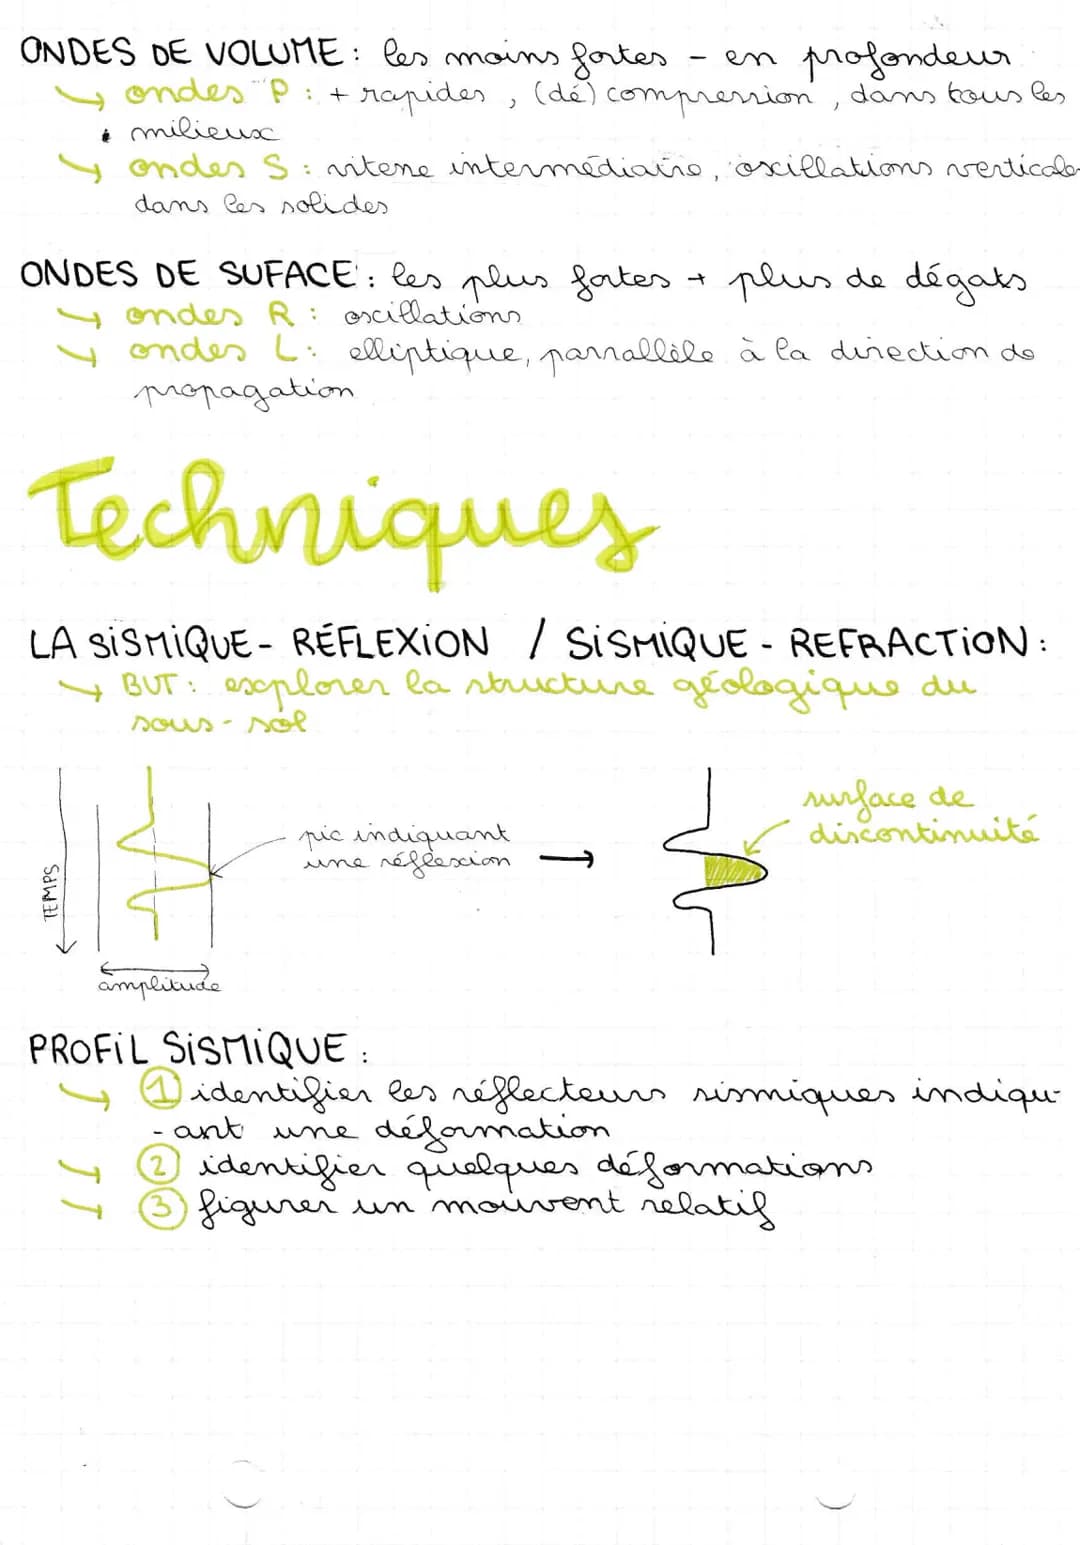 ONDES DE VOLUME : les moins fortes - en profondeur
ondes P : + rapides, (dé)compression, dans tous les
milieux
ondes S : vitesse intermédiaire, oscillations verticales
dans les solides
ONDES DE SUFACE : les plus fortes + plus de dégats
ondes R : oscillations
ondes L : elliptique, parrallèle à la direction de
propagation
Techniques
LA SISMIQUE - RÉFLEXION / SISMIQUE - REFRACTION :
BUT : explorer la structure géologique du
sous-sol
TEMPS
pic indiquant
une réflexion
surface de
discontinuité
amplitude
PROFIL SISMIQUE :
1 identifier les réflecteurs sismiques indiqu-
-ant une déformation
2 identifier quelques déformations
3 figurer un mouvent relatif